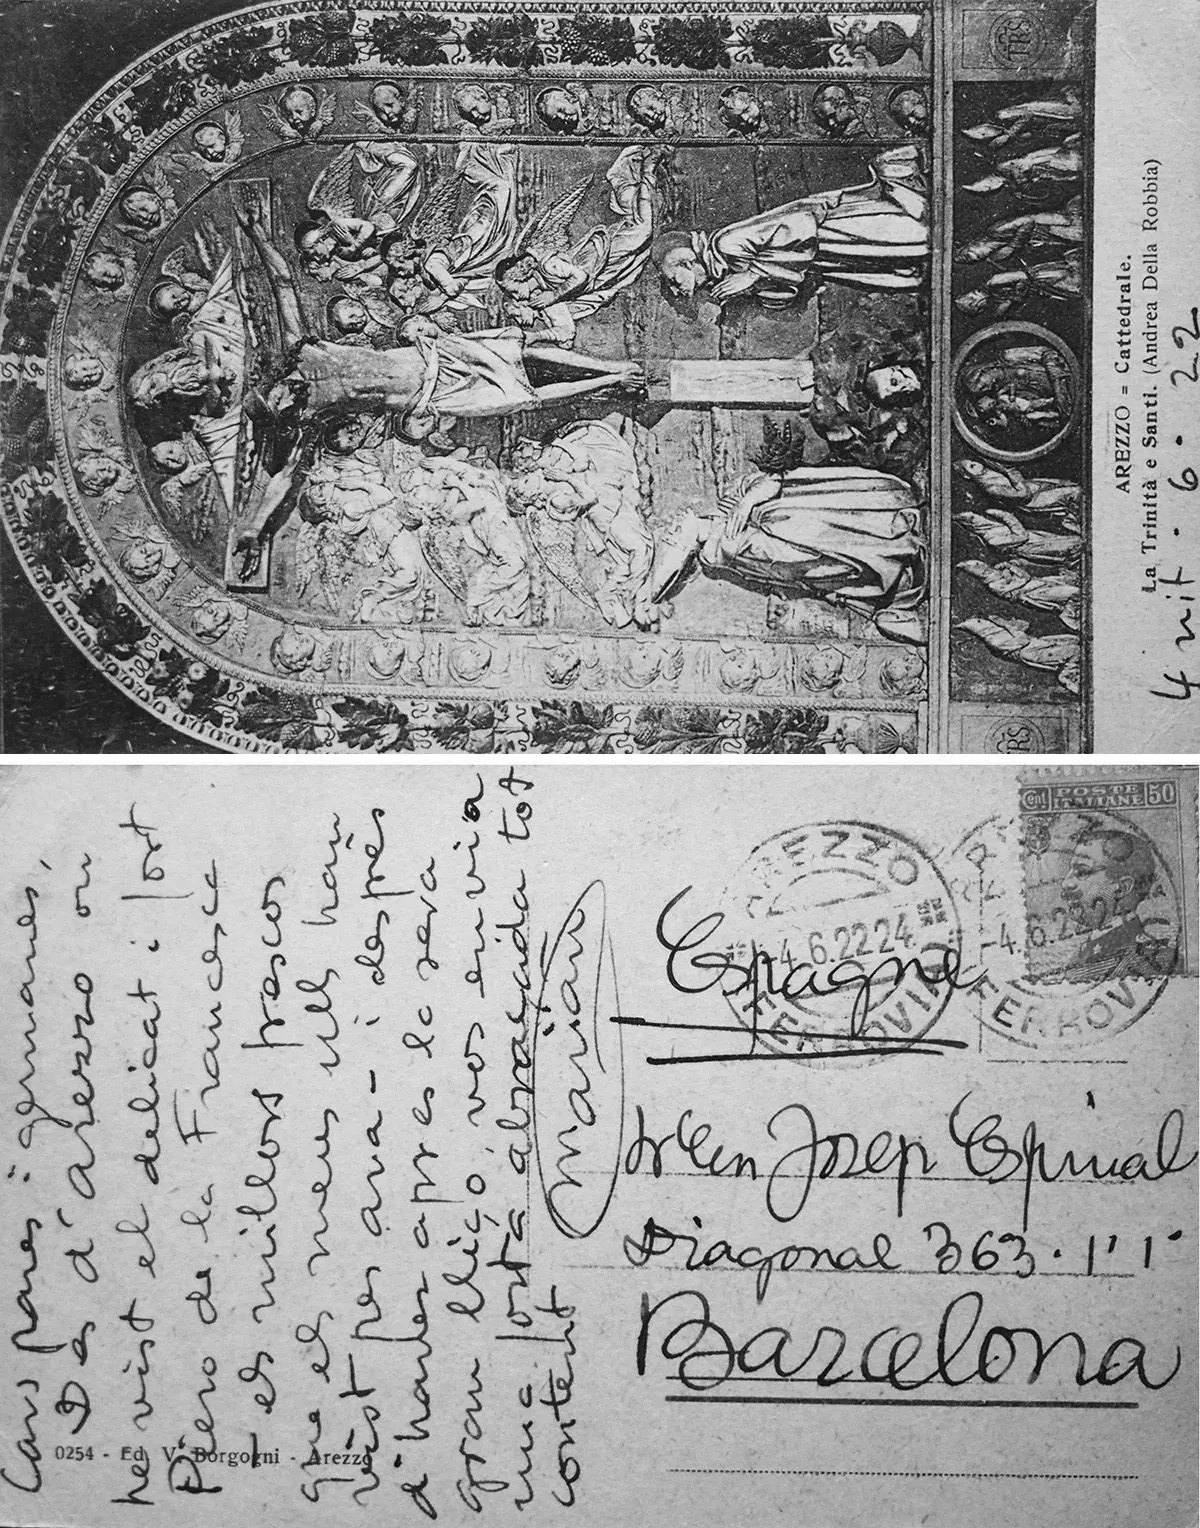 AREZZO = Cattedrale.
La Trinità e Santi. (Andrea Della Robbia)
4 nit · 6 · 22
Cars pares i germanes,
Des d'Arezzo on
he vist el delicat i fort
Piero de la Francesca
i els millors frescos
que els meus ulls han
vist per ara - i després
d'haver apres la seva
gran lliçó, vos envia
una forta abraçada tot
content
Marian
0254 - Ed. V. Borgogni - Arezzo
AREZZO
4.6.22 24
FERROVIA
AREZZO
4.6.22 24
FERROVIA
Cent. POSTE ITALIANE 50
Espagne
Sr En Josep Espinal
Diagonal 363 · 1r 1ª
Barcelona